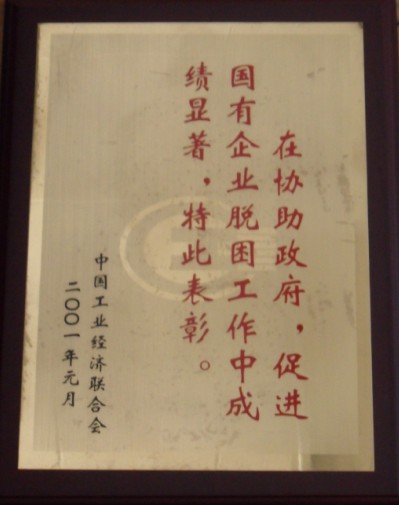 在协助政府，促进
国有企业脱困工作中成
绩显著，特此表彰。
中国工业经济联合会
二〇〇一年元月